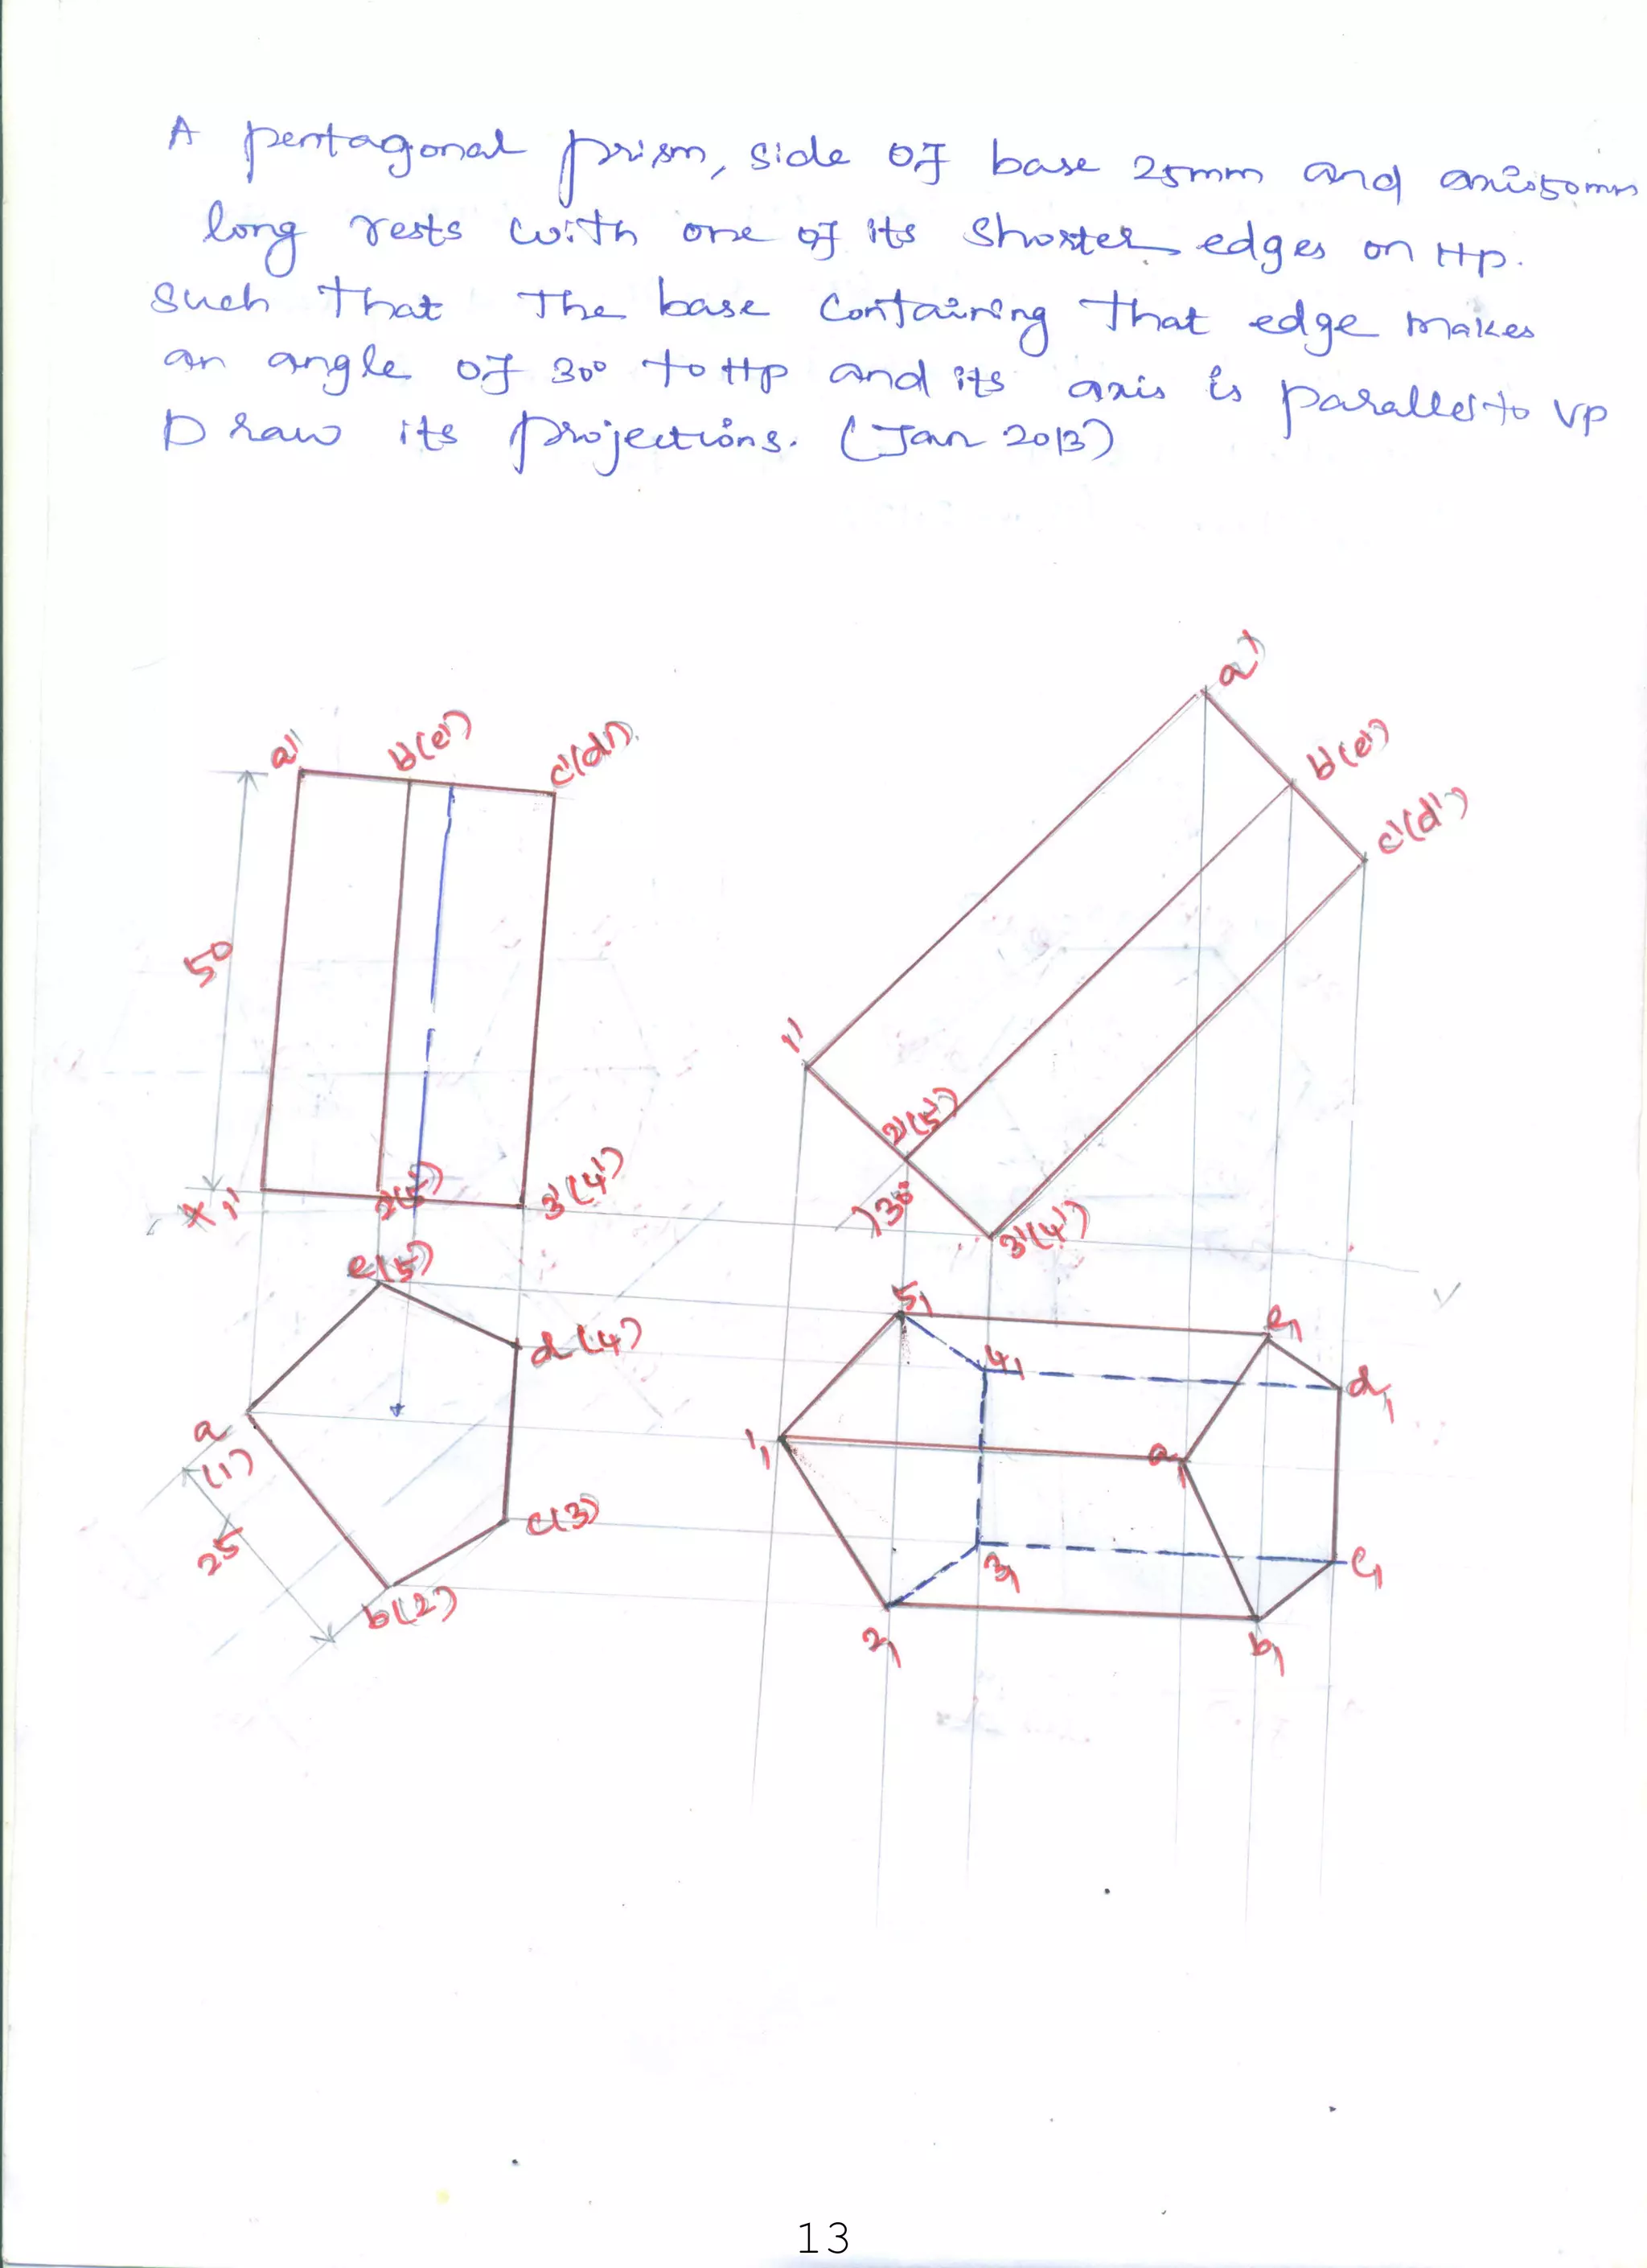 A pentagonal prism, side of base 25mm and axis 50mm
long rests with one of its shorter edges on HP.
Such that The base containing that edge makes
an angle of 30° to HP and its axis is parallel to VP
Draw its projections. (Jan 2013)
a'
a' b'(e') c'(d')
b'(e')
c'(d')
50
1'
2'(5')
X 1' 2'(5') 3'(4')
30°
3'(4')
e(5)
5₁ e₁
d(4)
4₁ d₁
a
(1)
1₁ a₁
25
c(3)
3₁ c₁
b(2)
2₁ b₁
13